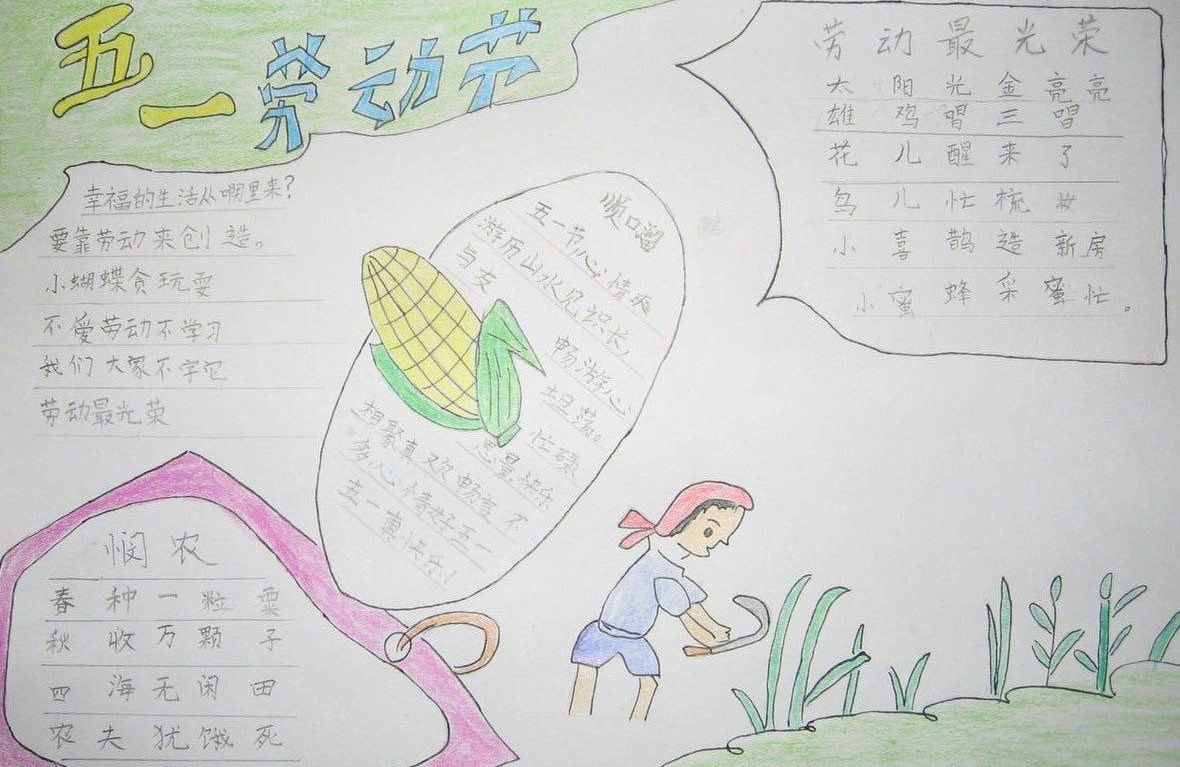 五一劳动节
幸福的生活从啊里来?
要靠劳动来创造。
小蝴蝶贪玩耍
不爱劳动不学习
我们大家不学它
劳动最光荣
顺口溜
五一节心情爽
游历山水见识长,
与友
畅游心
坦荡。
忙碌
思量快乐
相聚真欢畅言不
多心情好五一
五一真快乐!
劳动最光荣
太阳光金亮亮
雄鸡唱三唱
花儿醒来了
鸟儿忙梳妆
小喜鹊造新房
小蜜蜂采蜜忙。
悯农
春种一粒粟
秋收万颗子
四海无闲田
农夫犹饿死